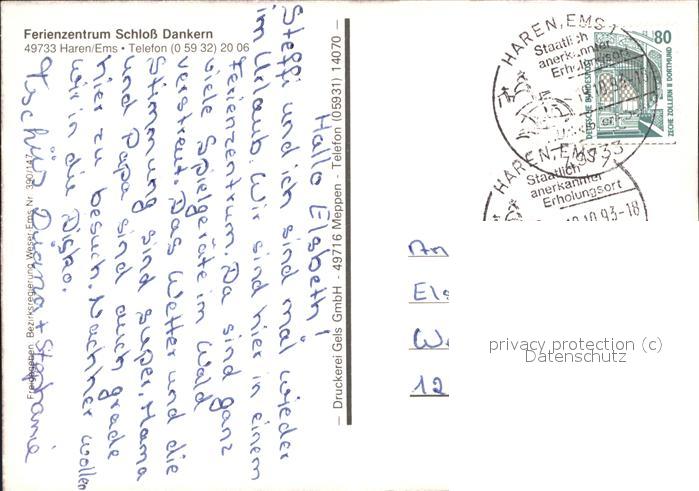 Ferienzentrum Schloß Dankern
49733 Haren/Ems • Telefon (0 59 32) 20 06
Hallo Elsbeth!
Steffi und ich sind mal wieder
im Urlaub. Wir sind hier in einem
Ferienzentrum. Da sind ganz
viele Spielgeräte im Wald
verstreut. Das Wetter und die
Stimmung sind super. Mama
und Papa sind auch grade
hier zu besuch. Nachher wollen
wir in die Disko.
Tschüß Diana + Stephanie
Freigegeben Bezirksregierung Weser-Ems Nr.
– Druckerei Gels GmbH - 49716 Meppen - Telefon (05931) 14070 –
HAREN, EMS 1
Staatlich
anerkannter
Erholungsort
80
DEUTSCHE BUNDESPOST
ZECHE ZOLLERN II DORTMUND
49733
HAREN, EMS
Staatlich
anerkannter
Erholungsort
10.93-18
An
Els
We
12
privacy protection (c)
Datenschutz